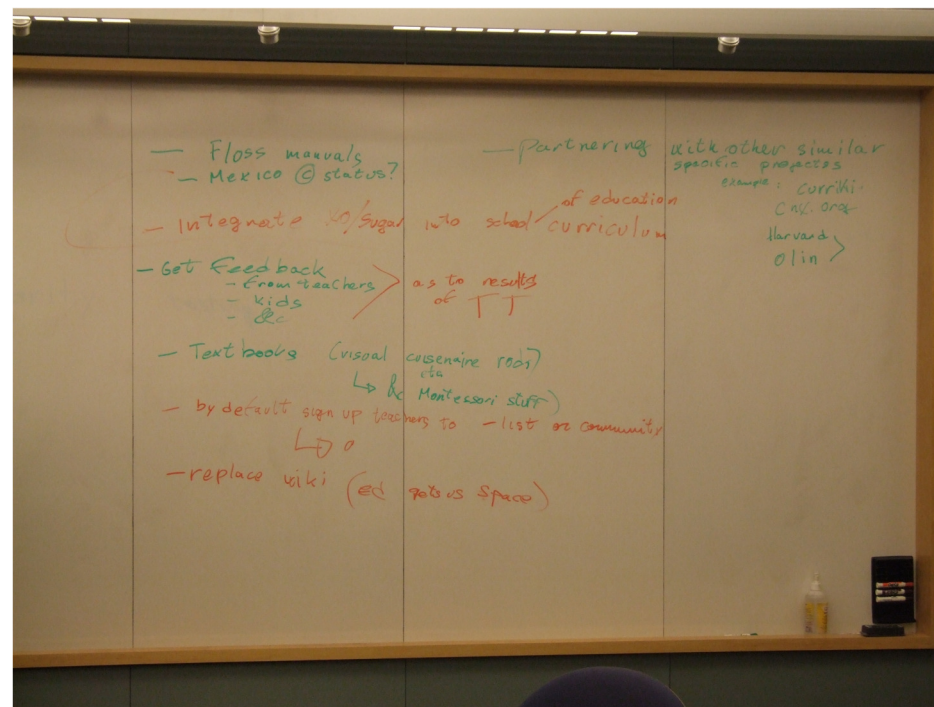 — Floss manuals
— Mexico © status?
— Integrate XO/Sugar into school of education curriculum
— Get Feedback
- from teachers
- kids
- &c
as to results
of TT
— Textbooks (visual cuisenaire rods)
etc
↳ & Montessori stuff)
— by default sign up teachers to -list or community
↳
— replace wiki (ed space)
— Partnering with other similar
specific projectos
example: curriki.
cnx.org
Harvard
Olin